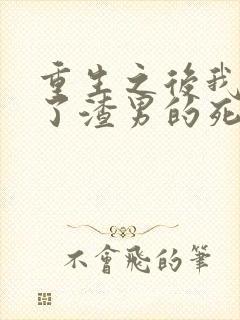 重生之後我
了渣男的死
不會飛的筆